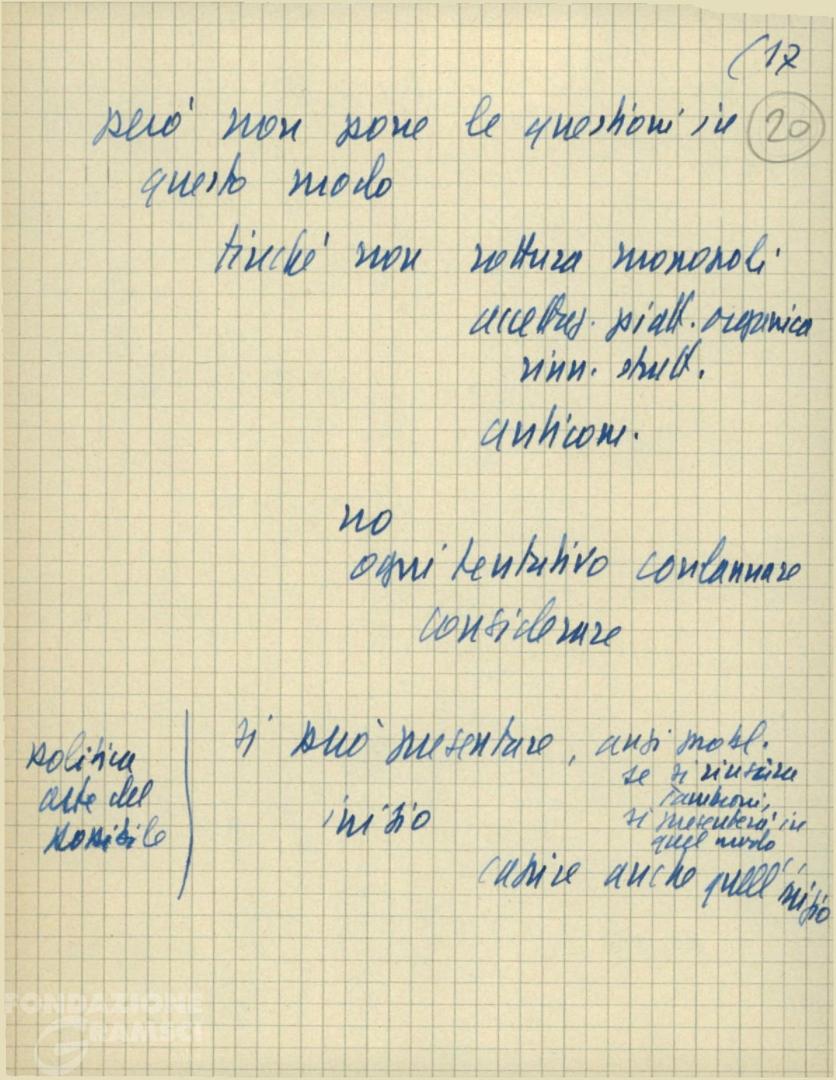 (17
20
però non pone le questioni in
questo modo
finché non rottura monopoli
accettaz. piatt. organica
rinn. strutt.
anticom.
no
ogni tentativo condannare
considerare
politica
arte del
possibile
si può presentare, anzi
se si
si presenterà in
quel modo
inizio
capire anche quell'inizio
FONDAZIONE
GRAMSCI